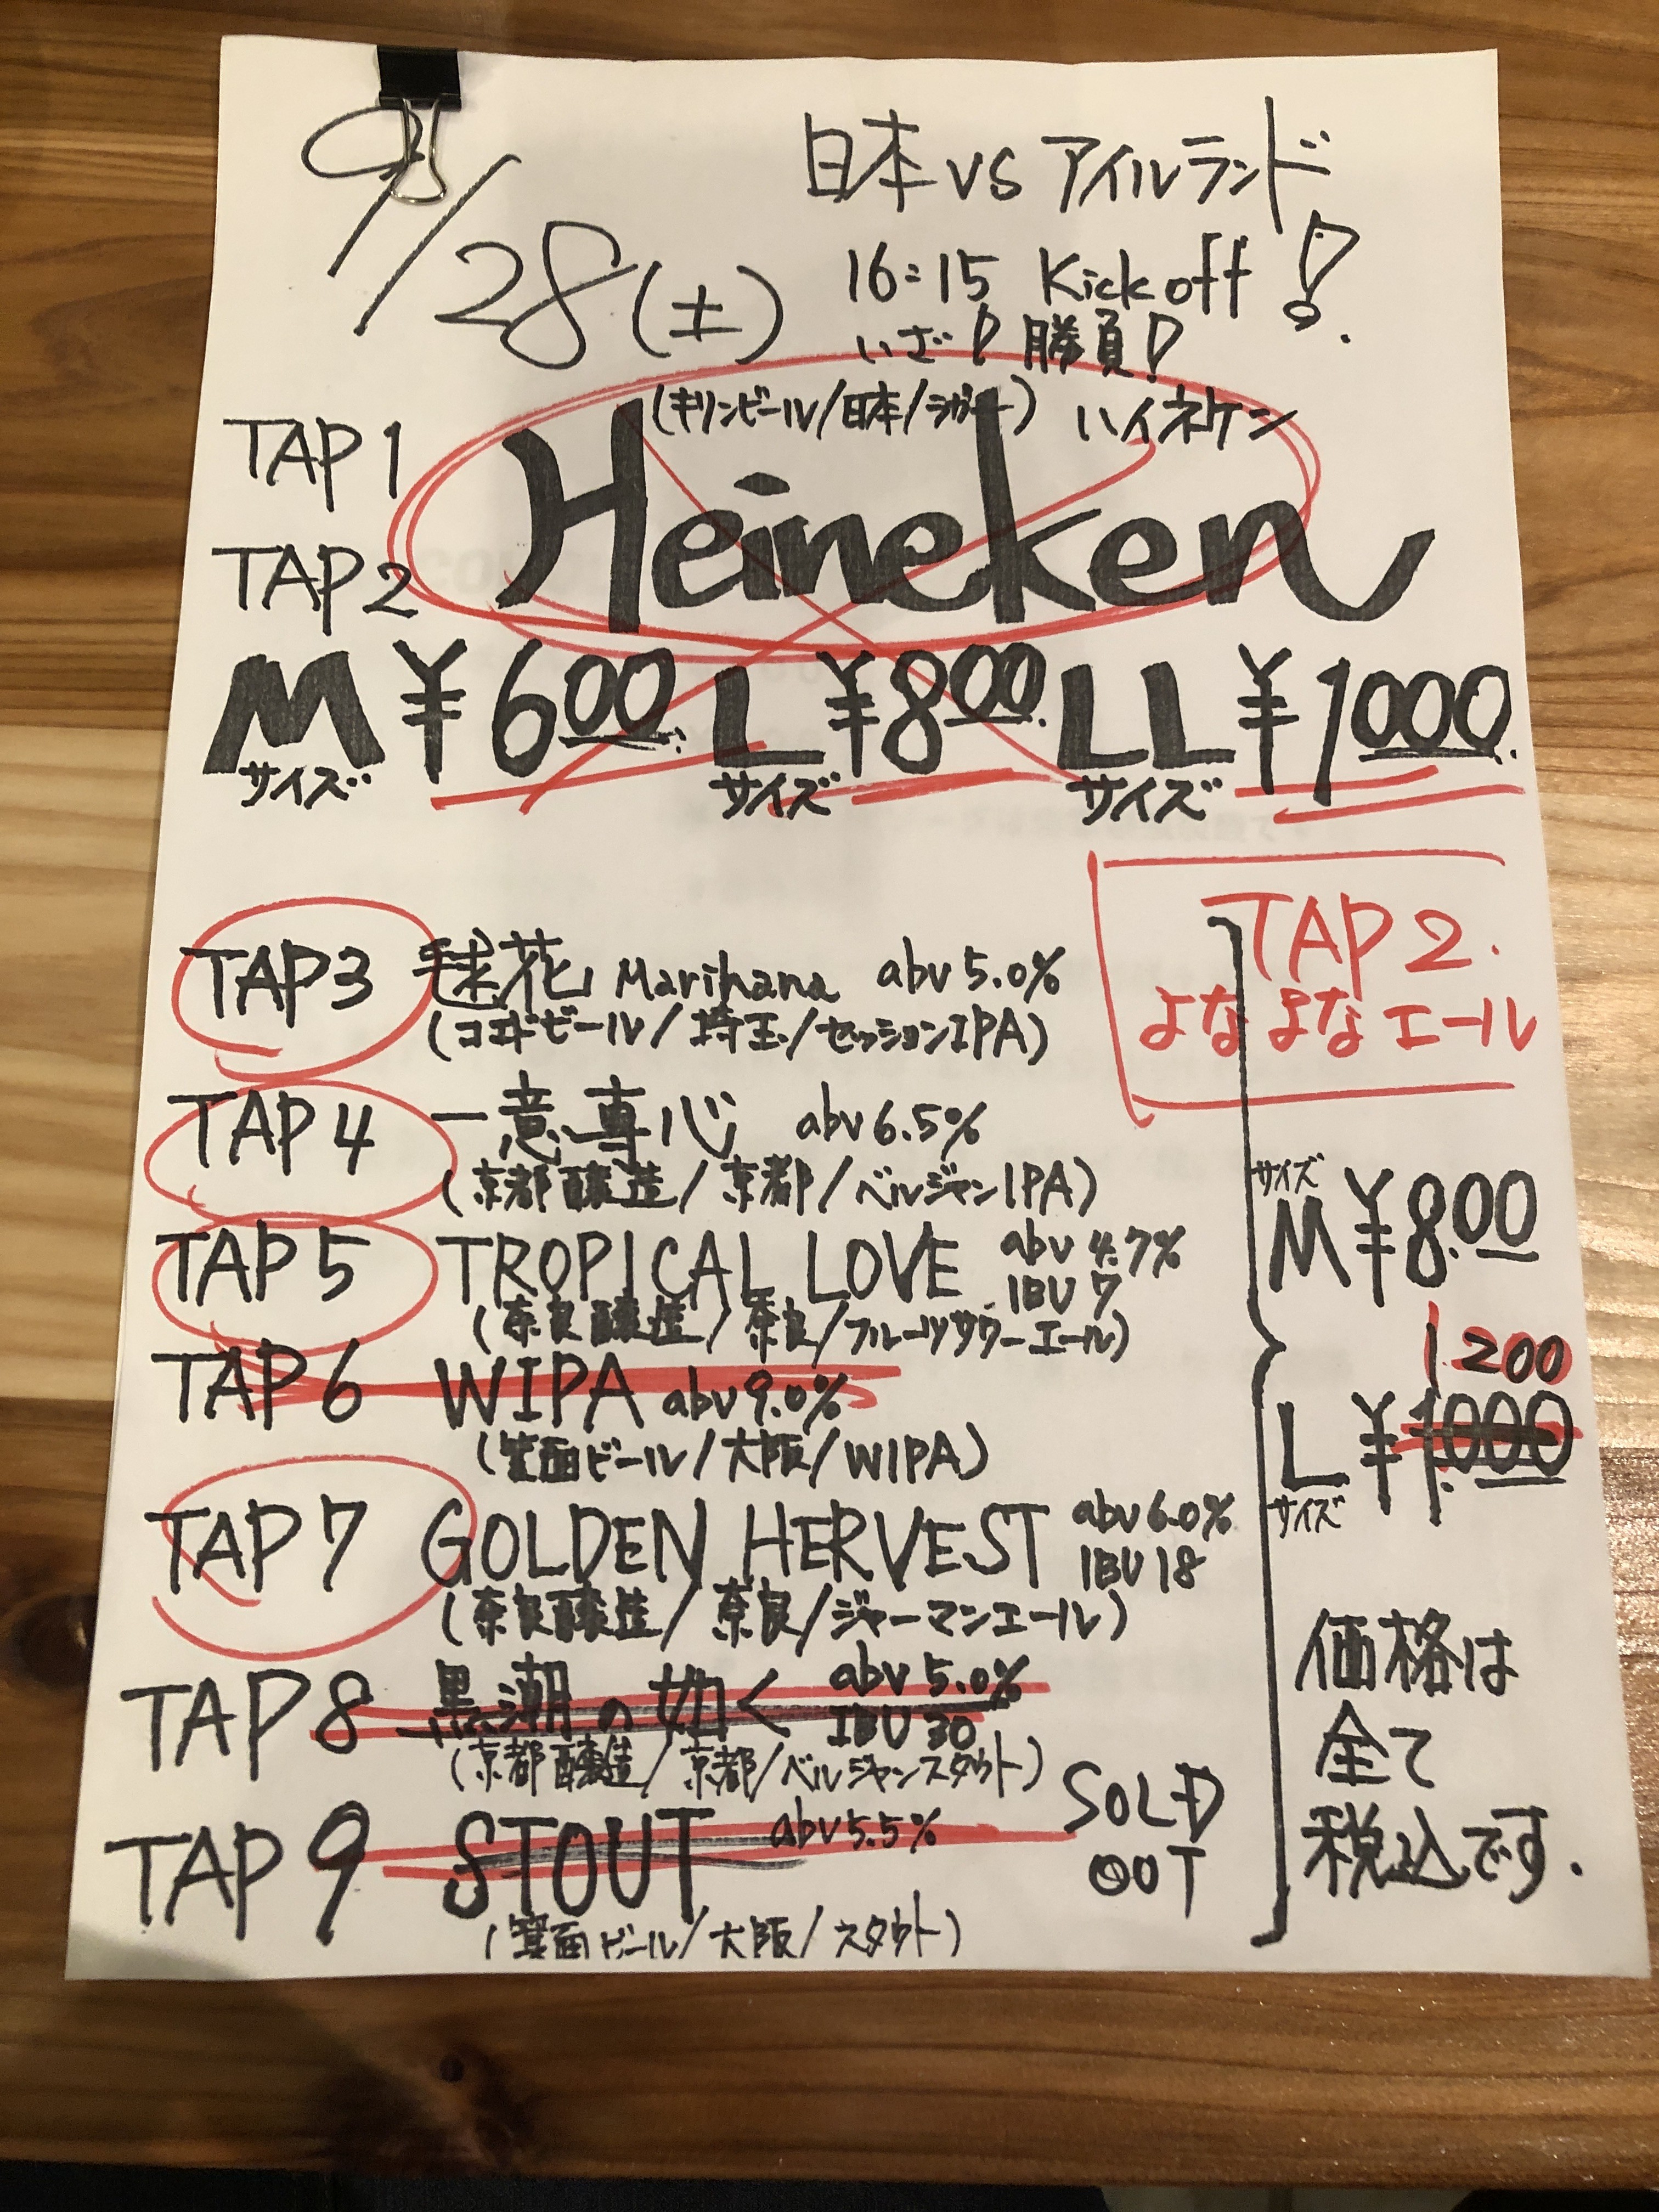 9/28(土)
日本 vs アイルランド
16:15 Kick off!
いざ!勝負!
(キリンビール/日本/ラガー) ハイネケン
TAP 1
TAP 2
Heineken
M ¥600. L ¥800. LL ¥1000.
サイズ サイズ サイズ
TAP 2.
よなよなエール
TAP 3 毬花 Marihana abv 5.0%
(コエドビール/埼玉/セッションIPA)
TAP 4 一意専心 abv 6.5%
(京都醸造/京都/ベルジャンIPA)
TAP 5 TROPICAL LOVE abv 4.7%
IBU 7
(奈良醸造/奈良/フルーツサワーエール)
TAP 6 WIPA abv 9.0%
(箕面ビール/大阪/WIPA)
TAP 7 GOLDEN HERVEST abv 6.0%
IBU 18
(奈良醸造/奈良/ジャーマンエール)
TAP 8 黒潮の如く abv 5.0%
IBU 30
(京都醸造/京都/ベルジャンスタウト)
TAP 9 STOUT abv 5.5%
(箕面ビール/大阪/スタウト)
SOLD
OUT
サイズ
M ¥8.00
1.200
L ¥1.000
サイズ
価格は
全て
税込です.